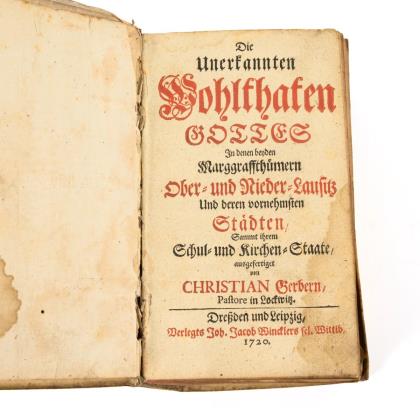 Die
Unerkannten
Wohlthaten
GOTTES
In denen beyden
Marggraffthümern
Ober- und Nieder-Lausitz
Und deren vornehmsten
Städten/
Sammt ihrem
Schul- und Kirchen-Staate/
ausgefertiget
von
CHRISTIAN Gerbern,
Pastore in Lockwitz.
Dreßden und Leipzig,
Verlegts Joh. Jacob Wincklers sel. Wittib.
1720.